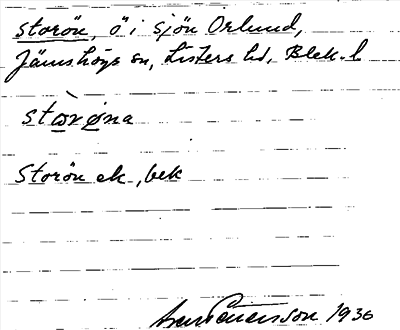 storön, ö i sjön Orlund,
Jämshögs sn, Listers hd, Blek. l.
stòrøna
Storön ek, bek
1936